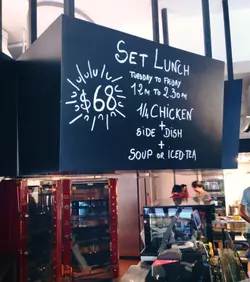 SET LUNCH
TUESDAY TO FRIDAY
$68
12PM TO 2.30PM
1/4 CHICKEN
+
SIDE DISH
+
SOUP OR ICED TEA